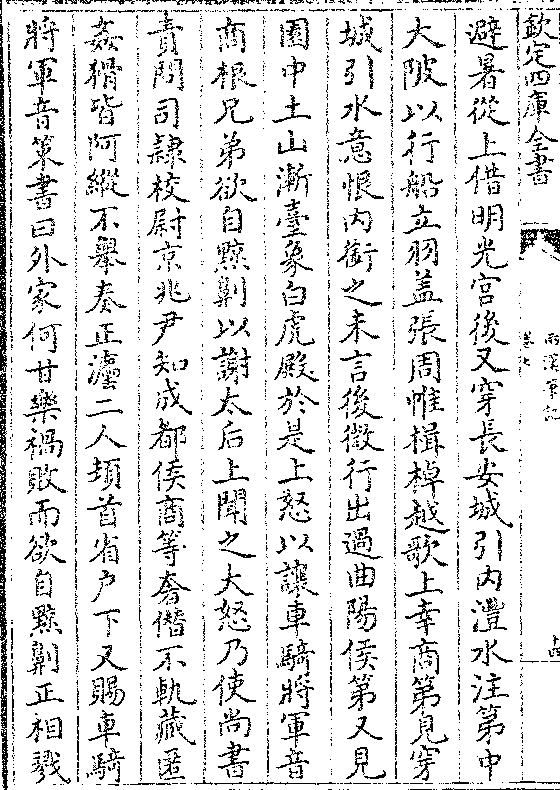 欽定四庫全書
避暑從上借明光宮後又穿長安城引内灃水注第中
大陂以行船立羽盖張周帷楫棹越歌上幸商第見穿
城引水意恨内銜之未言後微行出過曲陽侯第又見
園中土山漸臺象白虎殿於是上怒以讓車騎將軍音
商根兄弟欲自黥劓以謝太后上聞之大怒乃使尚書
責問司隷校尉京兆尹知成都侯商等奢僭不軌藏匿
姦猾皆阿縱不舉奏正灋二人頓首省户下又賜車騎
將軍音策書曰外家何甘樂禍敗而欲自黥劓正相戮